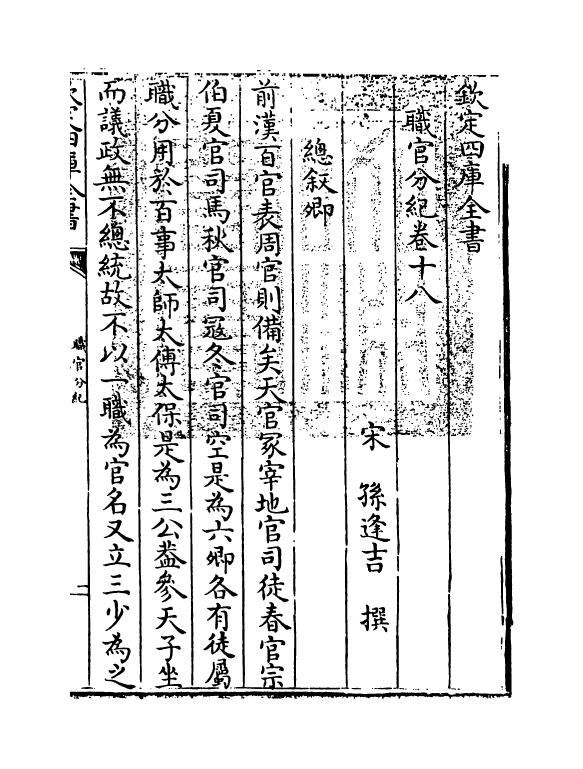 欽定四庫全書
職官分紀卷十八
宋 孫逢吉 撰
總叙卿
前漢百官表周官則備矣天官冢宰地官司徒春官宗
伯夏官司馬秋官司寇冬官司空是為六卿各有徒屬
職分用於百事太師太傅太保是為三公葢參天子坐
而議政無不總統故不以一職為官名又立三少為之
欽定四庫全書
職官分紀